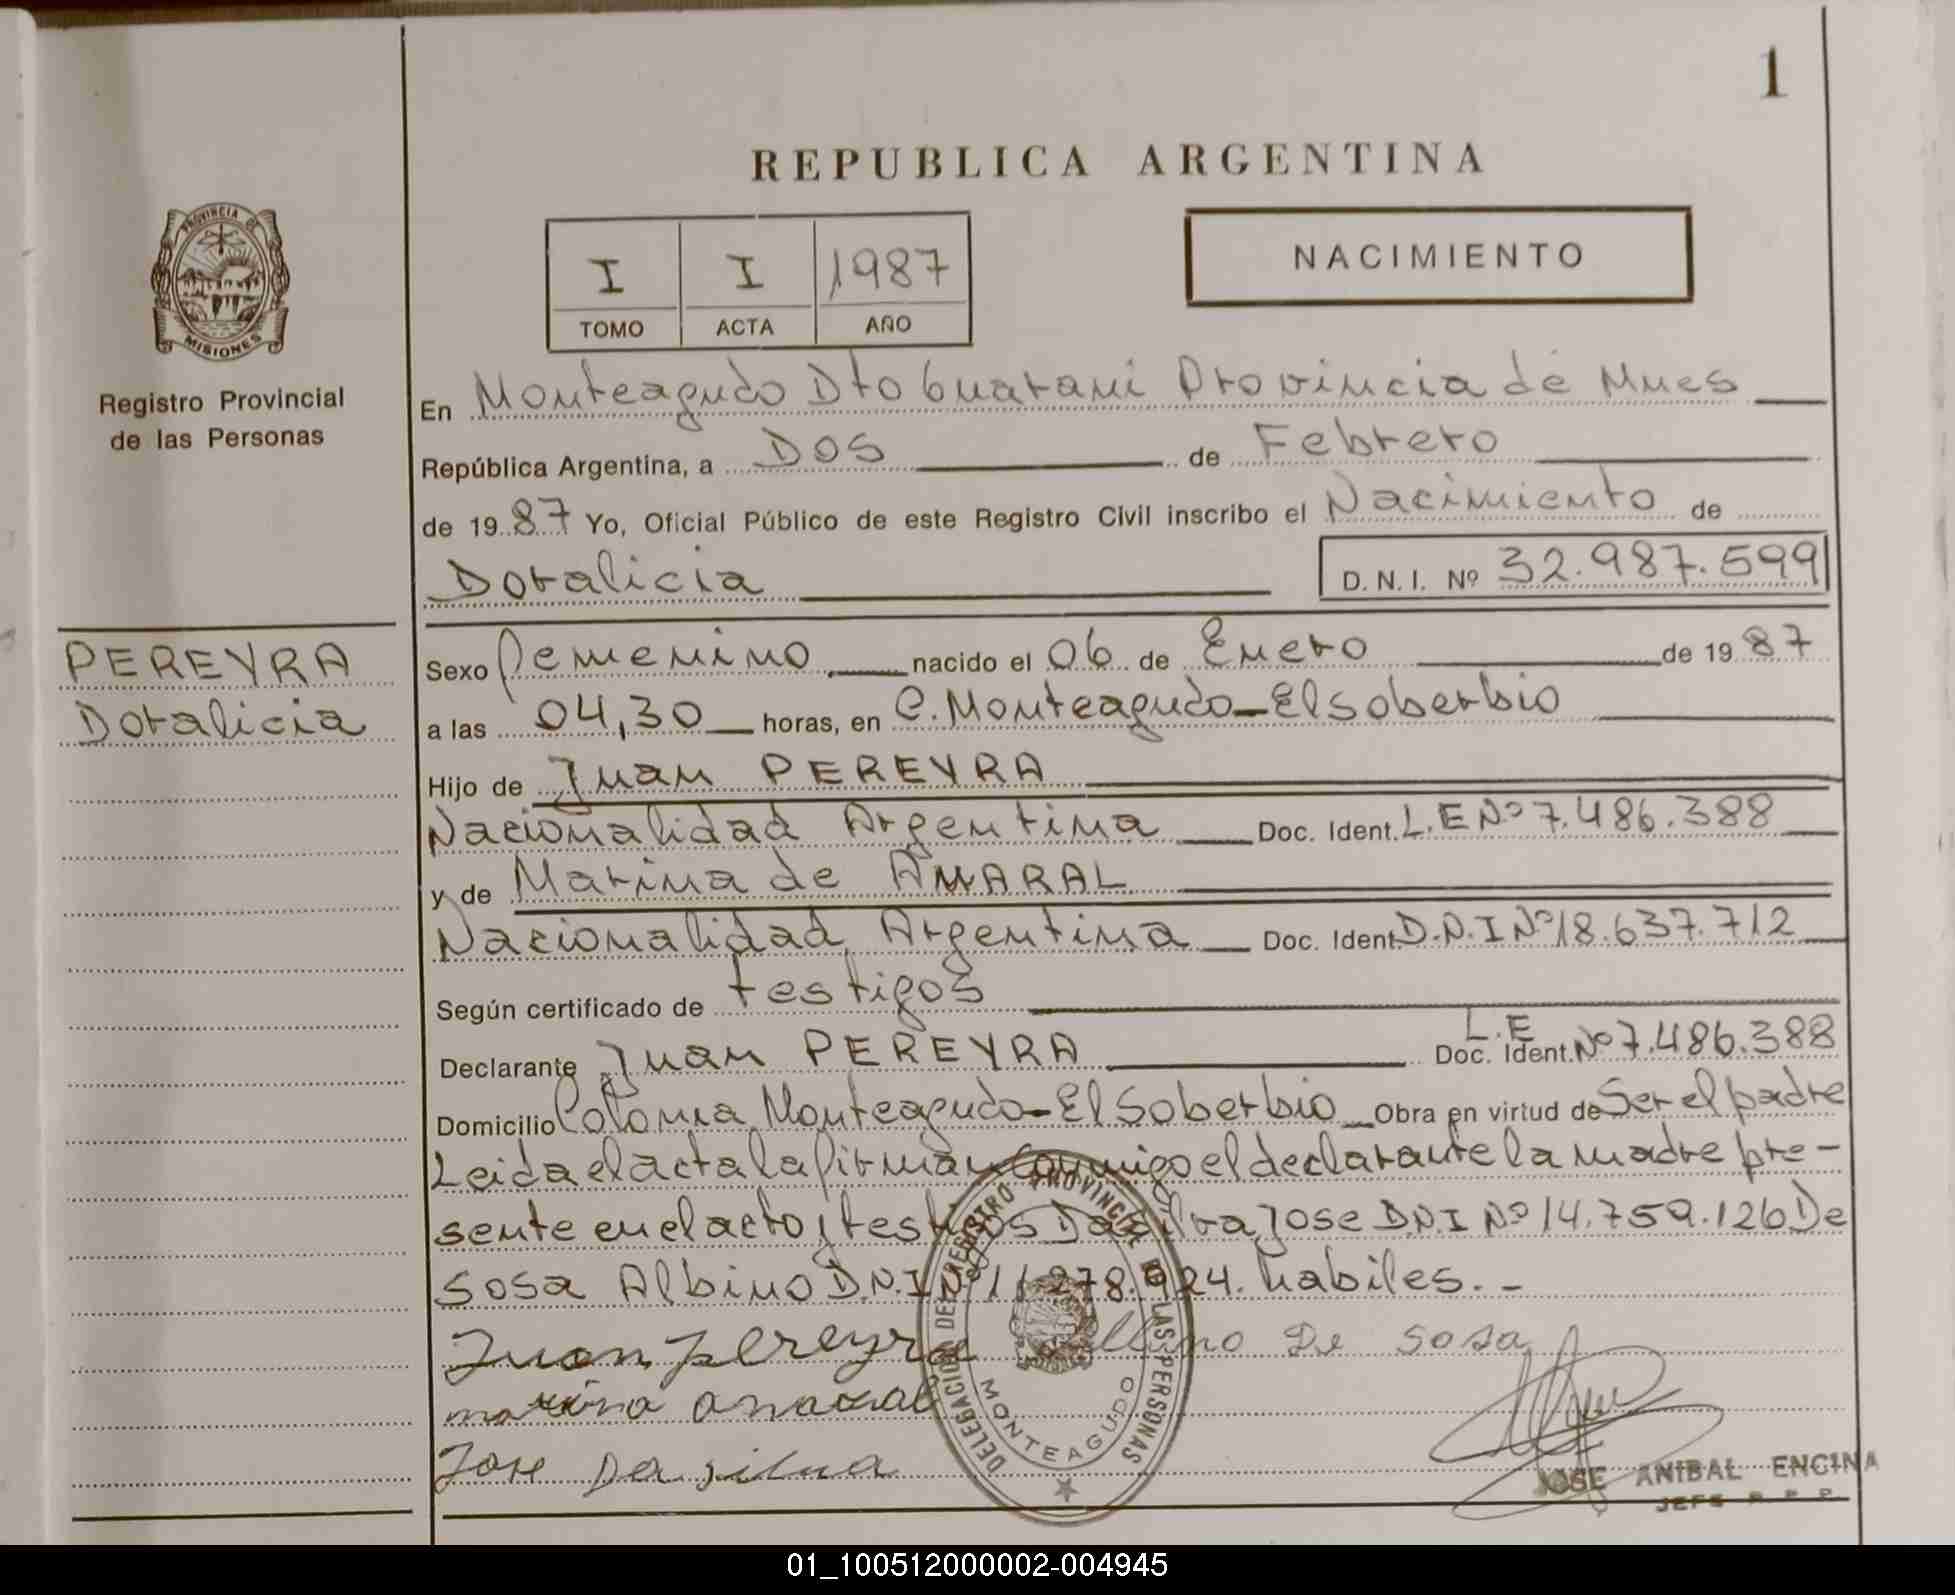 1
REPUBLICA ARGENTINA
PROVINCIA DE
MISIONES
Registro Provincial
de las Personas
I I 1987
TOMO ACTA AÑO
NACIMIENTO
En Monteagudo Dto Guarani Provincia de Mnes
República Argentina, a Dos de Febrero
de 1987 Yo, Oficial Público de este Registro Civil inscribo el Nacimiento de
Doralicia D.N.I. Nº 32.987.599
PEREYRA
Doralicia
Sexo femenino nacido el 06 de Enero de 1987
a las 04,30 horas, en C. Monteagudo-El soberbio
Hijo de Juan PEREYRA
Nacionalidad Argentina Doc. Ident. L.E Nº 7.486.388
y de Marina de AMARAL
Nacionalidad Argentina Doc. Ident. D.N.I Nº 18.637.712
Según certificado de testigos
Declarante Juan PEREYRA Doc. Ident. L.E Nº 7.486.388
Domicilio Colonia Monteagudo-El Soberbio Obra en virtud de Ser el padre
Leida el acta la firman conmigo el declarante la madre pre-
sente en el acto y testigos Da silva Jose D.N.I Nº 14.759.126 De
sosa Albino D.N.I Nº 11.278.924. habiles.-
Juan pereyra Albino De sosa
marina amaral
Jose Da silva
DELEGACION DEL REGISTRO PROVINCIAL DE LAS PERSONAS
MONTEAGUDO
JOSE ANIBAL ENCINA
JEFE R P P
01_100512000002-004945